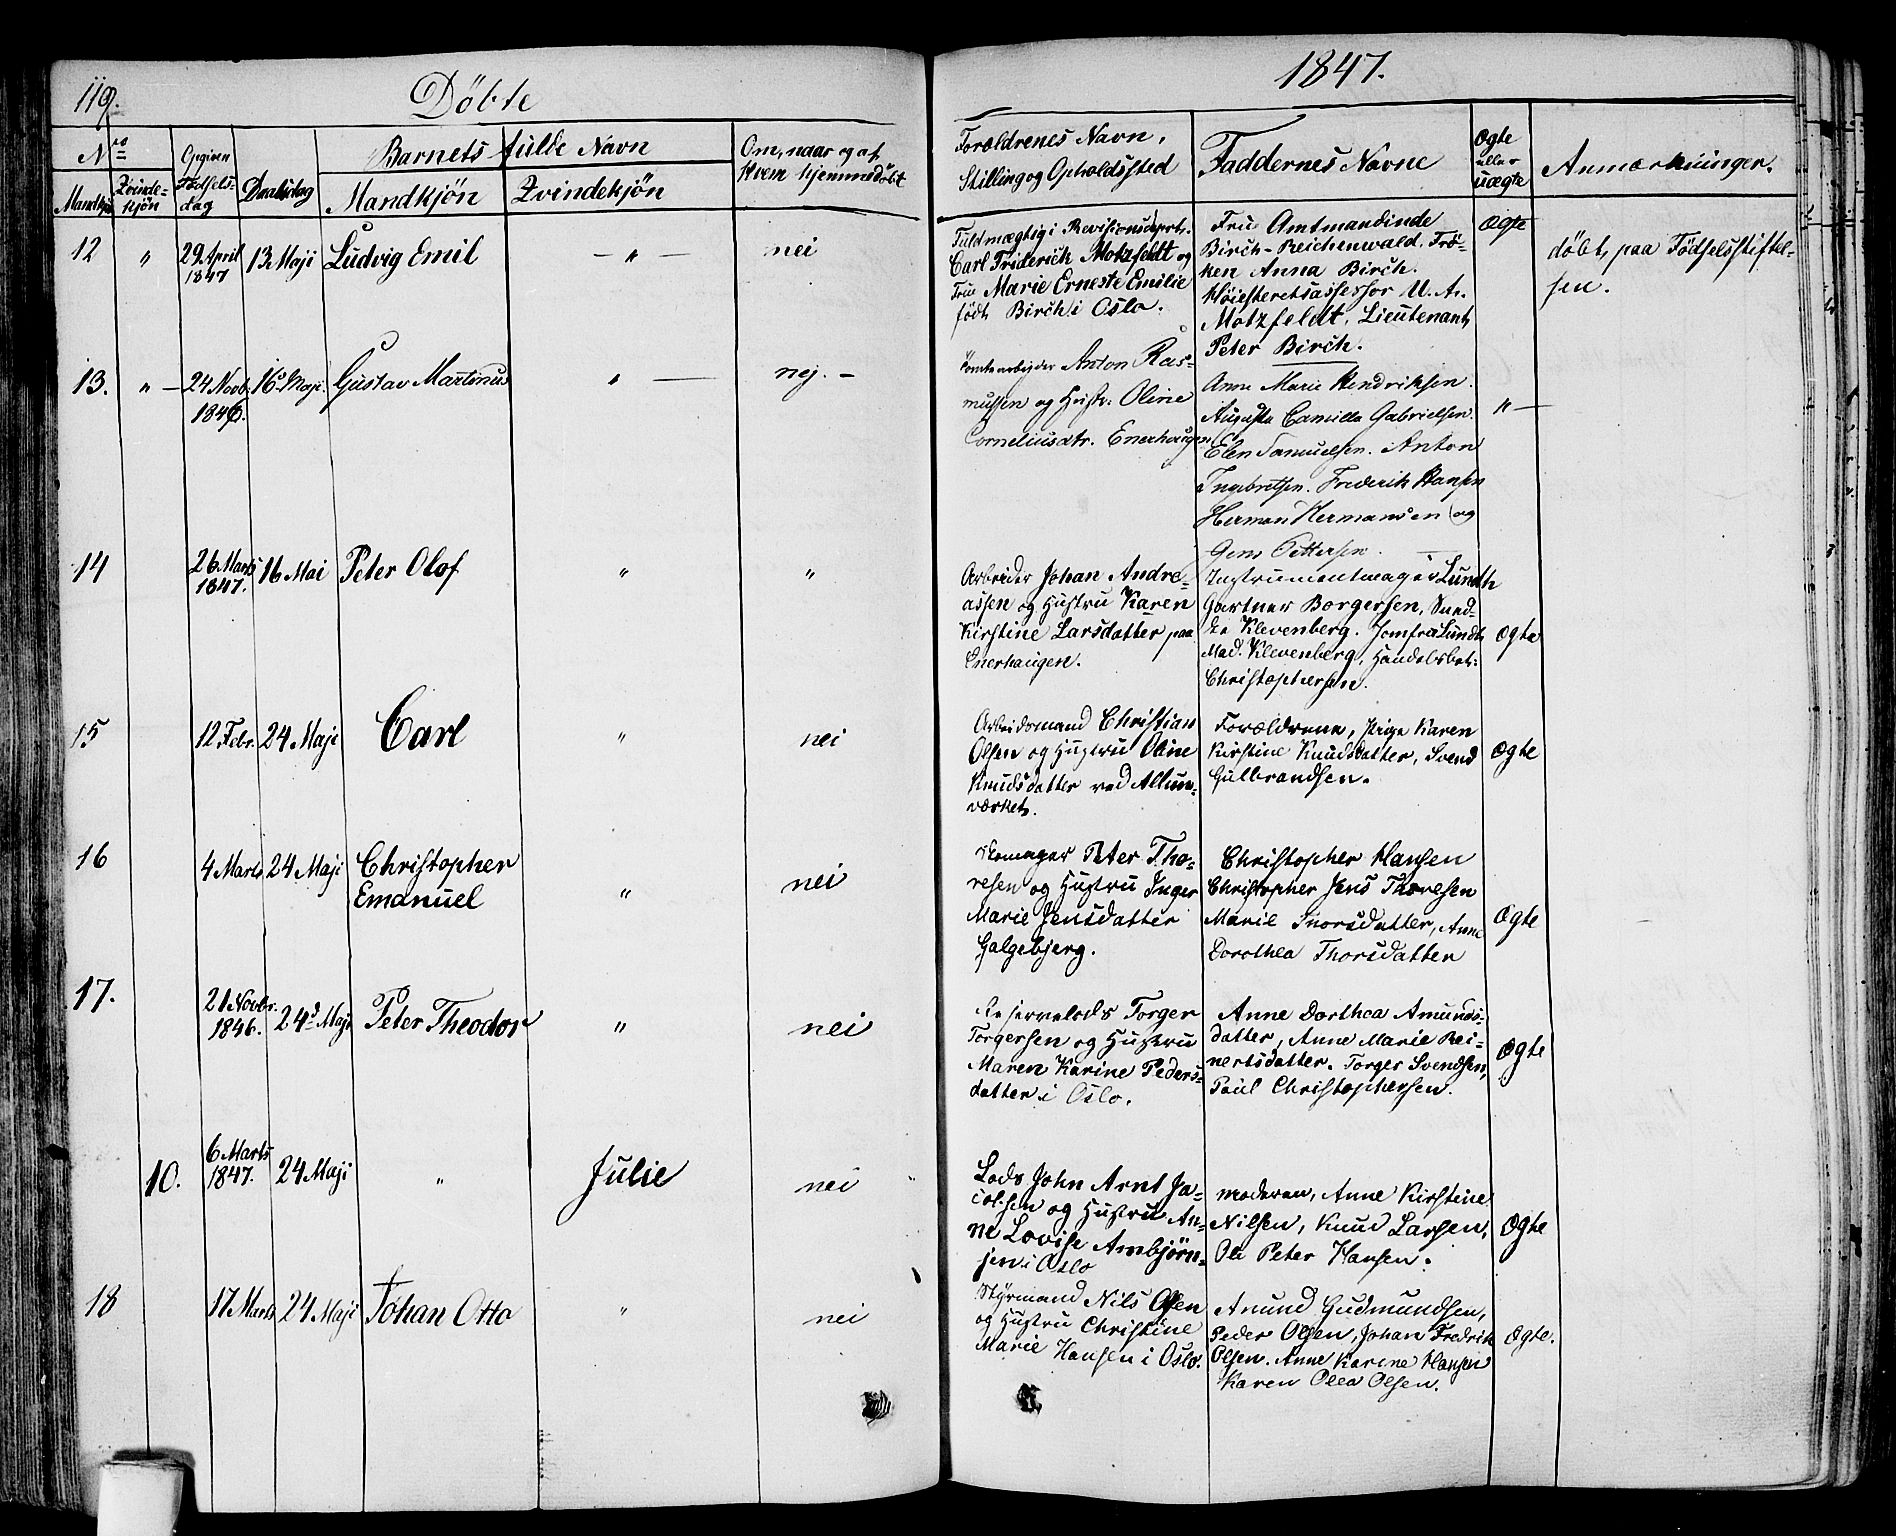 119.
Döbte
1847.
No
Mandkjön
Qvinde-
kjön
Opgiven
Födsels-
dag
Daabsdag
Barnets fulde Navn
Mandkjön
Qvindekjön
Om, naar og af
Hvem hjemmedöbt
Forældrenes Navn,
Stilling og Opholdssted
Faddernes Navne
Ægte
eller
uægte
Anmærkninger.
12
"
29 April
1847
13 Maji
Ludvig Emil
— " —
nei
Fuldmægtig i Revisionsdeprt.
Carl Friderich Motzfeldt og
Frue Marie Erneste Emilie
födt Birch i Oslo.
Frue Amtmandinde
Birch-Reichenwald. Frö-
ken Anna Birch.
Höiesteretsassessor U. A.
Motzfeldt, Lieutenant
Peter Birch.
Ægte
döbt paa Födselsstiftel-
sen.
13.
" —
24 Novb.
1846.
16 Maji.
Gustav Martinus
" —
nej. —
Tomtearbejder Anton Ras-
mussen og Hustr. Oline
Corneliusdtr. Enerhaugen
Anne Marie Hendriksen.
Augusta Camilla Gabrielsen.
Elen Samuelsen. Anton
Ingebretsen. Frederik Hansen
Herman Hermansen og
Jens Pettersen.
" —
14
26 Marts
1847.
16 Mai
Peter Olof
"
"
Arbeider Johan Andre-
assen og Hustru Karen
Kirstine Larsdatter paa
Enerhaugen.
Instrumentmager Lundth
Gartner Borgersen, Sned-
ke Klevenberg. Jomfru Lundt
Mad. Klevenberg, Handelsbet:
Christophersen.
Ægte
15
12 Febr.
24 Maji
Carl
"
nei
Arbeidsmand Christian
Olsen og Hustru Oline
Knudsdatter ved Allun-
værket.
Forældrene, Pige Karen
Kirstine Knudsdatter, Svend
Gulbrandsen.
Ægte
16
4 Marts
24 Maji
Christopher
Emanuel
"
nei
Skomager Peter Tho-
resen og Hustru Inger
Marie Jensdatter
Galgebjerg.
Christopher Hansen
Christopher Jens Thoresen
Marie Thorsdatter, Anne
Dorothea Thorsdatter
Ægte
17.
21 Novbr.
1846.
24d Maji
Peter Theodor
"
nei
Reservelods Torger
Torgersen og Hustru
Maren Karine Peders-
datter i Oslo.
Anne Dorthea Amunds-
datter, Anne Marie Rei-
nertsdatter. Torger Svendsen,
Paul Christophersen.
Ægte
10.
6 Marts
1847.
24 Maji
"
Julie
nei
Lods John Arnt Ja-
cobsen og Hustru An-
ne Lovise Ambjörn-
sen i Oslo
moderen, Anne Kirstine
Nilsen, Knud Larsen,
Ole Peter Hansen.
Ægte
18
17 Marts
24 Maji
Johan Otto
"
nei
Styrmand Nils Olsen
og Hustru Christine
Marie Hansen i Oslo.
Anund Gudmundsen,
Peder Olsen, Johan Fredrik
Olsen. Anne Karine Hansen
Karen Olea Olsen.
Ægte.